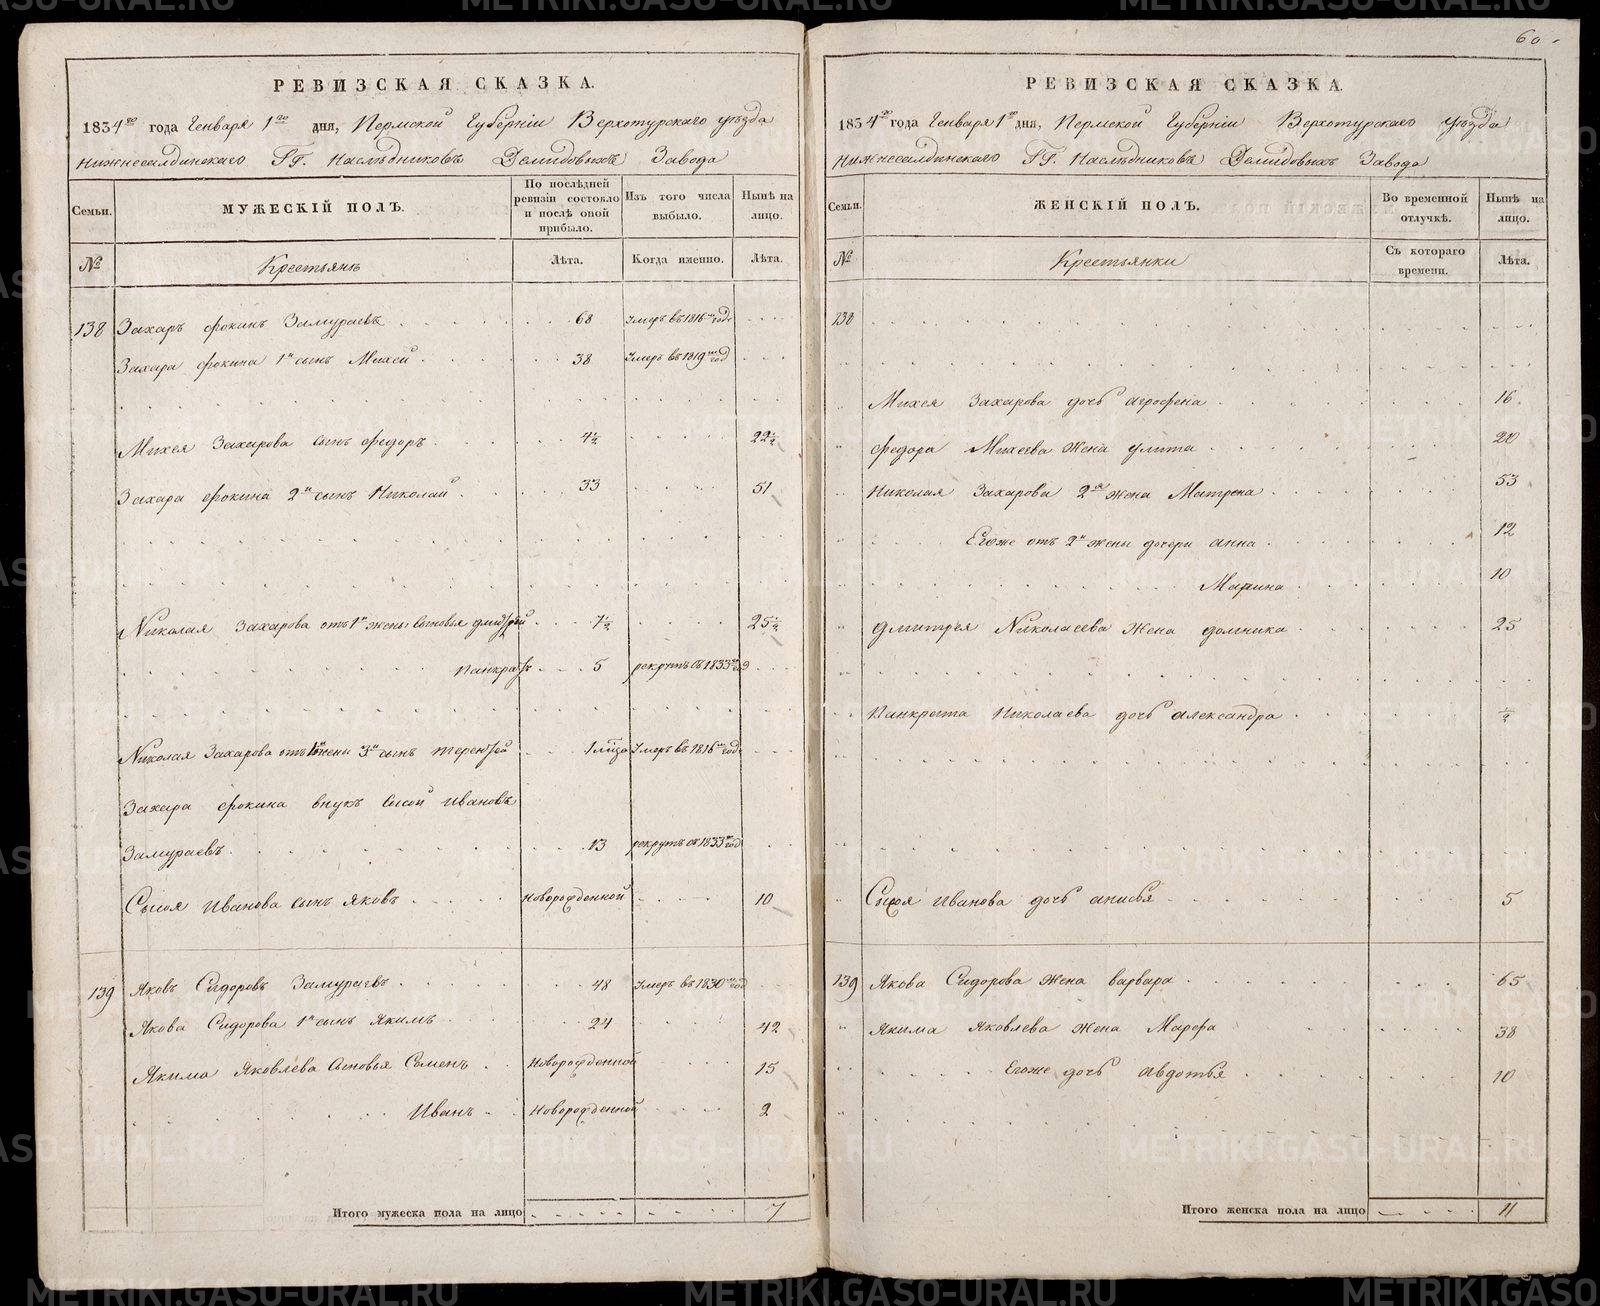 РЕВИЗСКАЯ СКАЗКА.
1834го года Генваря 1го дня, Пермской Губернiи Верхотурскаго уѣзда
Нижнесалдинскаго ГГ. Наслѣдниковъ Демидовыхъ Завода
Семьи.
МУЖЕСКIЙ ПОЛЪ.
По послѣдней ревизiи состояло и послѣ оной прибыло.
Изъ того числа выбыло.
Нынѣ на лицо.
№
Крестьянъ
Лѣта.
Когда именно.
Лѣта.
138 Захаръ фокинъ Замураевъ 68 Умеръ въ 1816м годе
Захара фокина 1й сынъ Михей 38 Умеръ въ 1819м год
Михея Захарова сынъ федоръ 4½ 22½
Захара фокина 2й сынъ Николай 33 51
Николая Захарова отъ 1й жены сыновья дмитрей 7½ 25½
панкратъ 5 рекрутъ въ 1833м
Николая Захарова отъ 1й жены 3й сынъ терентей 1 Умеръ въ 1816м годе
Захара фокина внукъ Сысой ивановъ
Замураевъ 13 рекрутъ въ 1833м год
Сысоя иванова сынъ яковъ новорожденной 10
139 Яковъ Сидоровъ Замураевъ 48 Умеръ въ 1830м год
Якова Сидорова 1й сынъ яким 24 42
Якима Яковлева сыновья Семенъ новорожденной 15
Иванъ новорожденной 2
Итого мужеска пола на лицо 7
60
РЕВИЗСКАЯ СКАЗКА.
1834го года Генваря 1го дня, Пермской Губернiи Верхотурскаго уѣзда
Нижнесалдинскаго ГГ. Наслѣдниковъ Демидовыхъ Завода
Семьи.
ЖЕНСКIЙ ПОЛЪ.
Во временной отлучкѣ.
Нынѣ на лицо.
№
Крестьянки
Съ котораго времени.
Лѣта.
138
Михея Захарова дочь агрофена 16
федора Михеева жена улита 20
Николая Захарова 2я жена Матрена 53
Егоже отъ 2й жены дочери анна 12
Марина 10
дмитрея Николаева жена домника 25
Панкрата Николаева дочь александра ½
Сысоя иванова дочь анисья 5
139 Якова Сидорова жена варвара 65
якима яковлева жена Марфа 38
Егоже дочь авдотья 10
Итого женска пола на лицо 11
METRIKI.GASO-URAL.RU